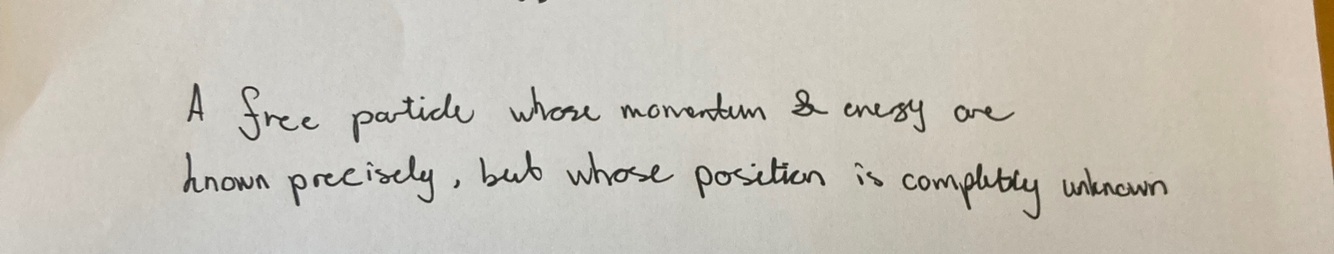 A free particle whose momentum & energy are
known precisely, but whose position is completely unknown